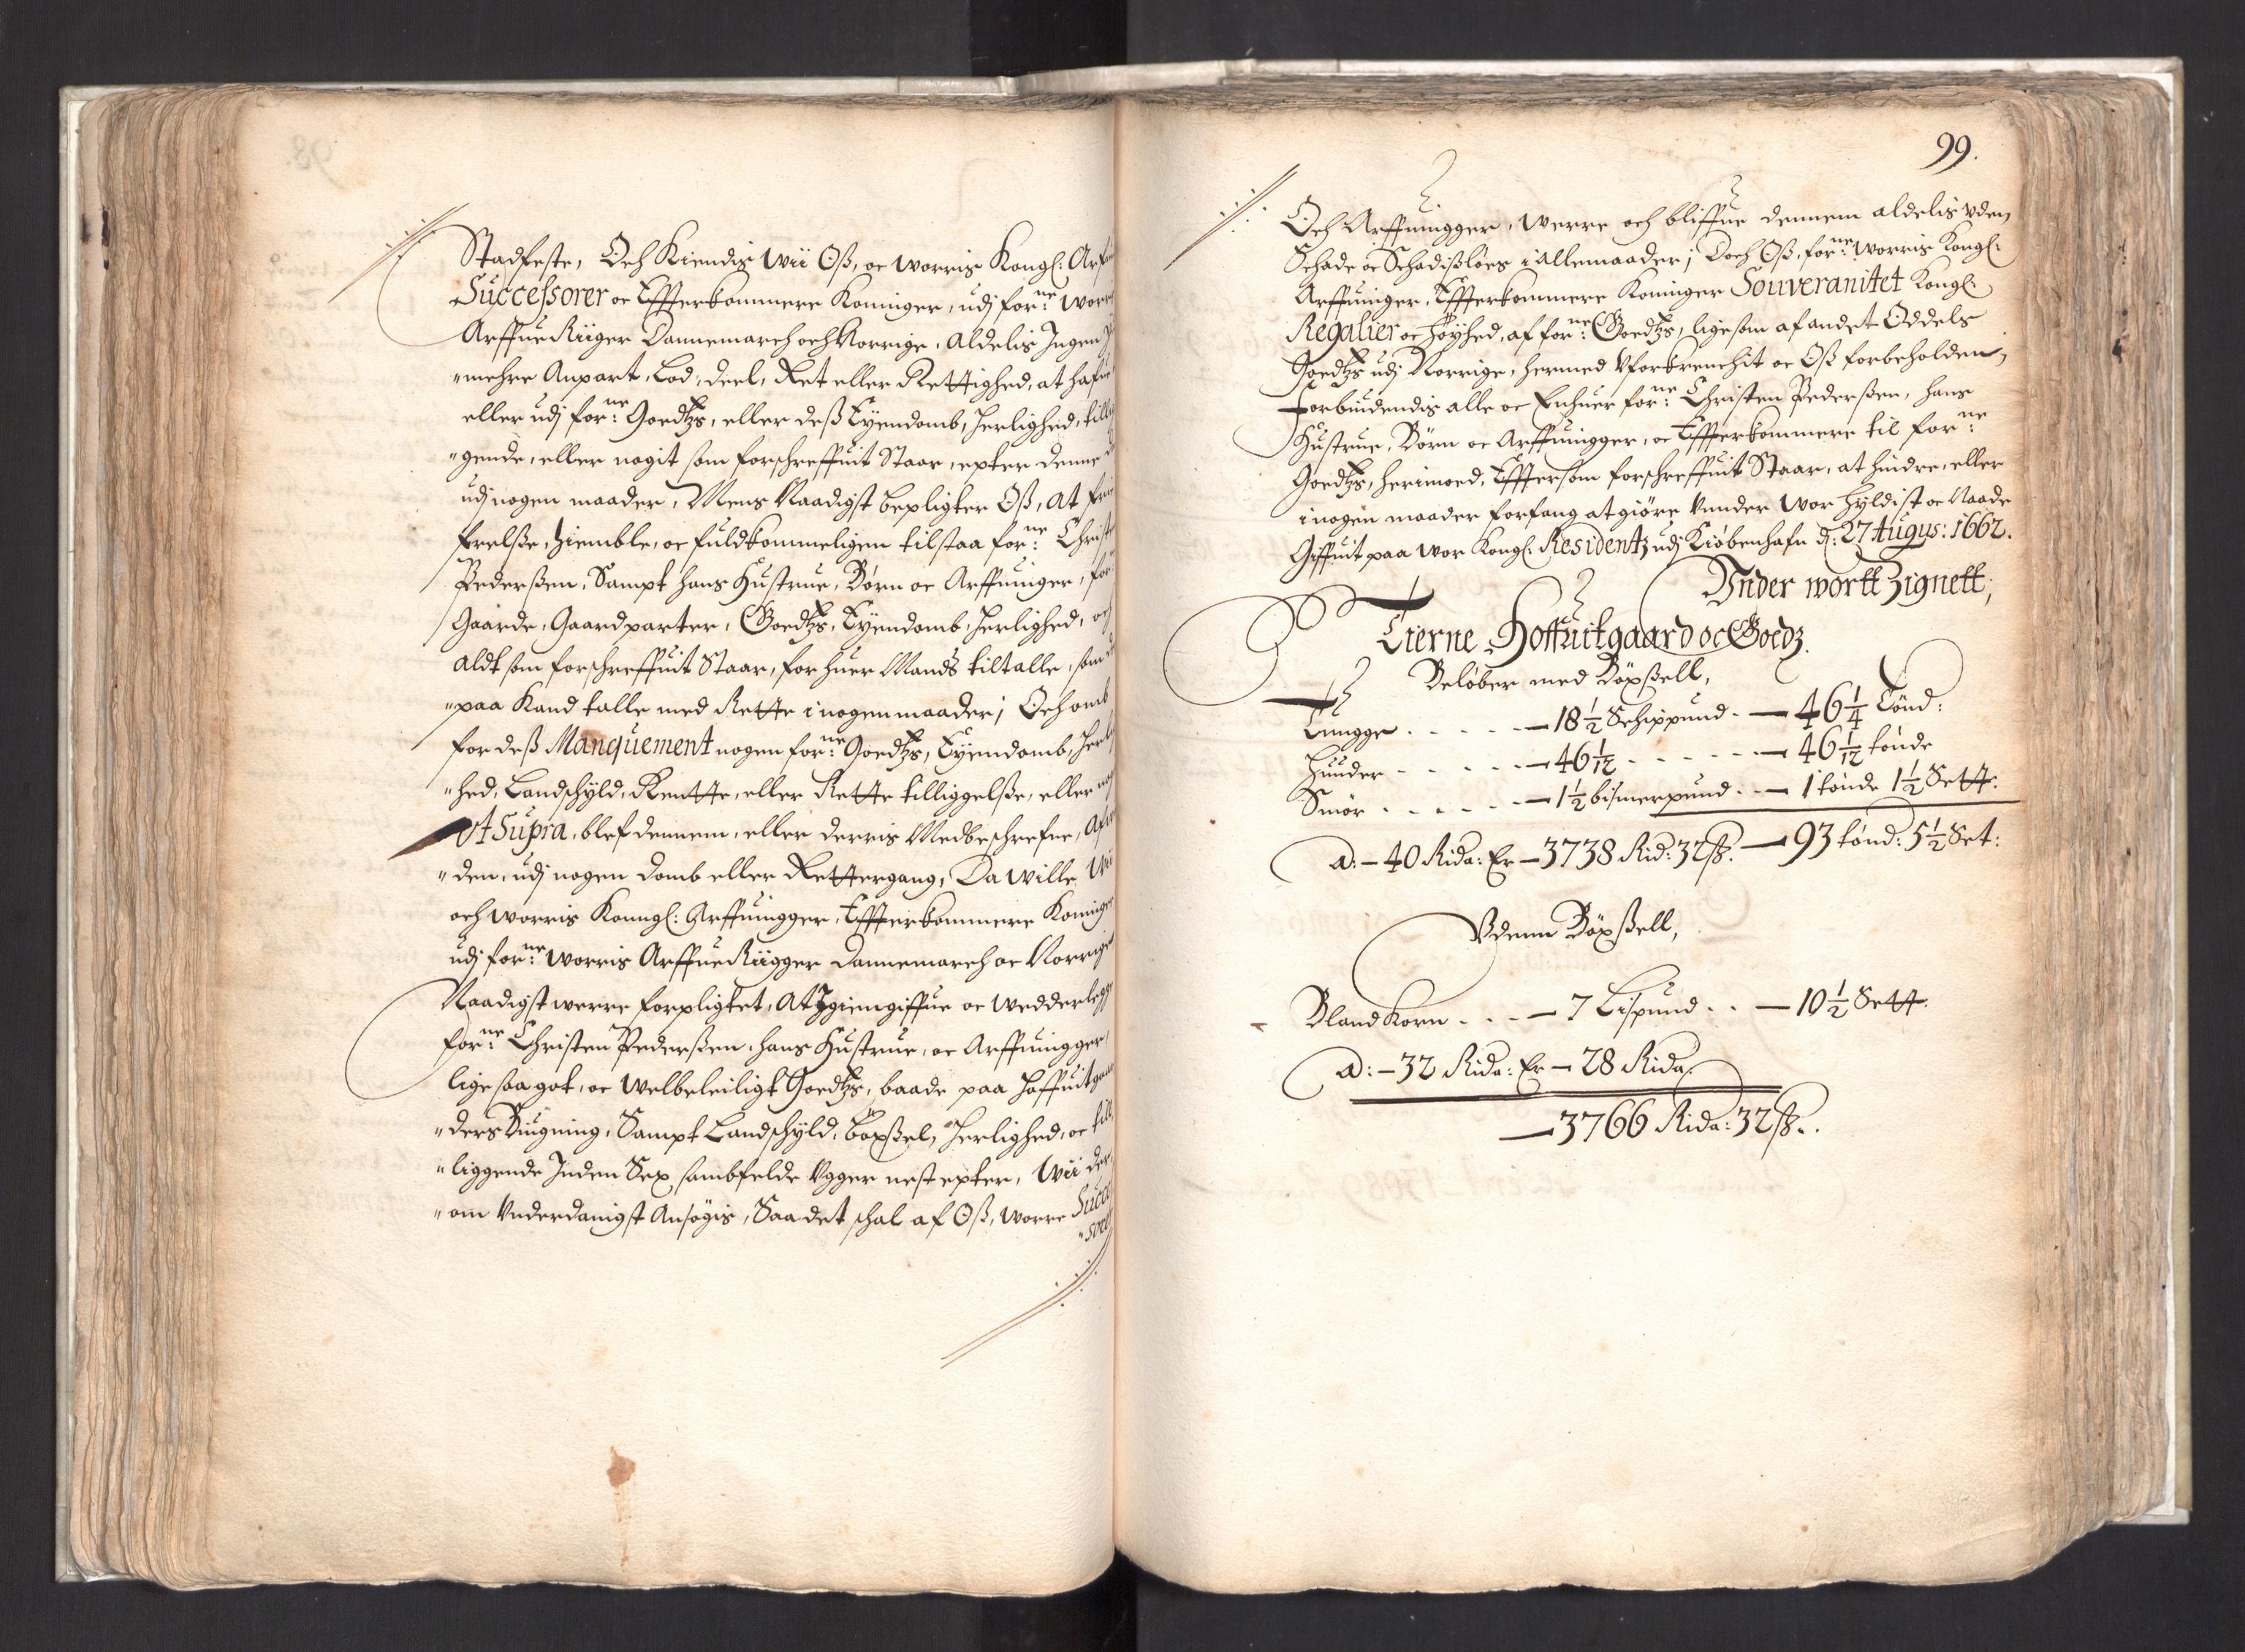 Stadfeste, Och Kiendis Wii Oß, oc Worris Kongl: Arf
Successorer oc Effterkommere Koninger, udj forne: Worr
Arffue Riiger Dannemarch och Norrige, Aldelis Ingen
"mehre Anpart, Lod, deel, Ret eller Rettighed, at hafue
eller udj forne: Goedtzs, eller deß Eyendomb, Herlighed, till
"gende, eller nogit som forschreffuit Staar, epter denne
udj nogen maader, Mens Naadigst bepligter Oß, At frie
frelße, hiemble, oc fuldkommeligen tilstaa forne: Christ
Pederßen, Sampt hans Hustrue, Børn oc Arffuinger, for
Gaarde, Gaardparter, Goedtzs, Eyendomb, Herlighed, och
aldt som forschreffuit Staar, for huer Mands tiltalle, som
"paa Kand talle med Rette i nogen maader; Och omb
for deß Manquement nogen forne: Goedtzs, Eyendomb, Herlig
"hed, Landschyld, Rentte, eller Rette tilliggelße, eller nog
Vt Supra, blef dennem, eller derris Medbeschrefne, Af
"den, udj nogen domb eller Rettergang, Da Wille Wi
och Worris Konngl: Arffuingger, Effterkommere Koninger
udj forne: Worris Arffue Riigger Dannemarch oc Norrige
Naadigst werre forpligtet, At Igiengiffue oc Wedderlegg
forne: Christen Pederßen, hans Hustrue, oc Arffuingger,
lige saa got, oc Welbeleiligt Goedtzs, baade paa Hoffuitgaar
"ders Buigning, Sampt Landschyld, Böxßel, Herlighed, oc till
"liggende Inden Sex sambfelde Vgger nest epter, Wii der
"om Underdanigst Ansøgis, Saa det schal af Oß, Worre Succes
"sorer
99.
Och Arffuingger, Werre och bliffue dennem aldelis uden
Schade oc Schadißløes i Allemaader; Doch Oß, forne: Worris Kongl:
Arffuinger, Effterkommere Koninger Souveranitet Kongl:
Regalier oc Høyhed, af forne: Goedtzs, lige som af andet Oddels
Goedtzs udj Norrige, hermed Uforkrenchit oc Oß forbeholden,
Forbiudendis alle oc Enhuer forne: Christen Pederßen, hans
Hustrue, Børn oc Arffuingger, oc Effterkommere til forne:
Goedtzs, herimod, Efftersom forschreffuit Staar, at hindre, eller
i nogen maader forfang at giøre Under Wor Hyldist oc Naade
Giffuit paa Wor Kongl: Residentz udj Kiøbenhafn d: 27 Augus: 1662.
Under wortt Zignett;
Tierne Hoffuitgaard oc Goedz.
Beløber med Böxßell,
Tungge . . . . . — 18 1/2 Schippund - — 46 1/4 Tönd:
Huuder - - - - - — 46 1/12 - - - - - — 46 1/12 tönde
Smør . . . . . — 1 1/2 bismerpund . . — 1 tönde 1 1/2 Sett:
a: — 40 Rida: Er — 3738 Rid: 32 ß. — 93 tönd: 5 1/2 Set:
Udenn Böxßell,
Bland Korn . . . — 7 Lispund . . — 10 1/2 Sett:
a: — 32 Rida: Er — 28 Rida:
— 3766 Rida: 32 ß.